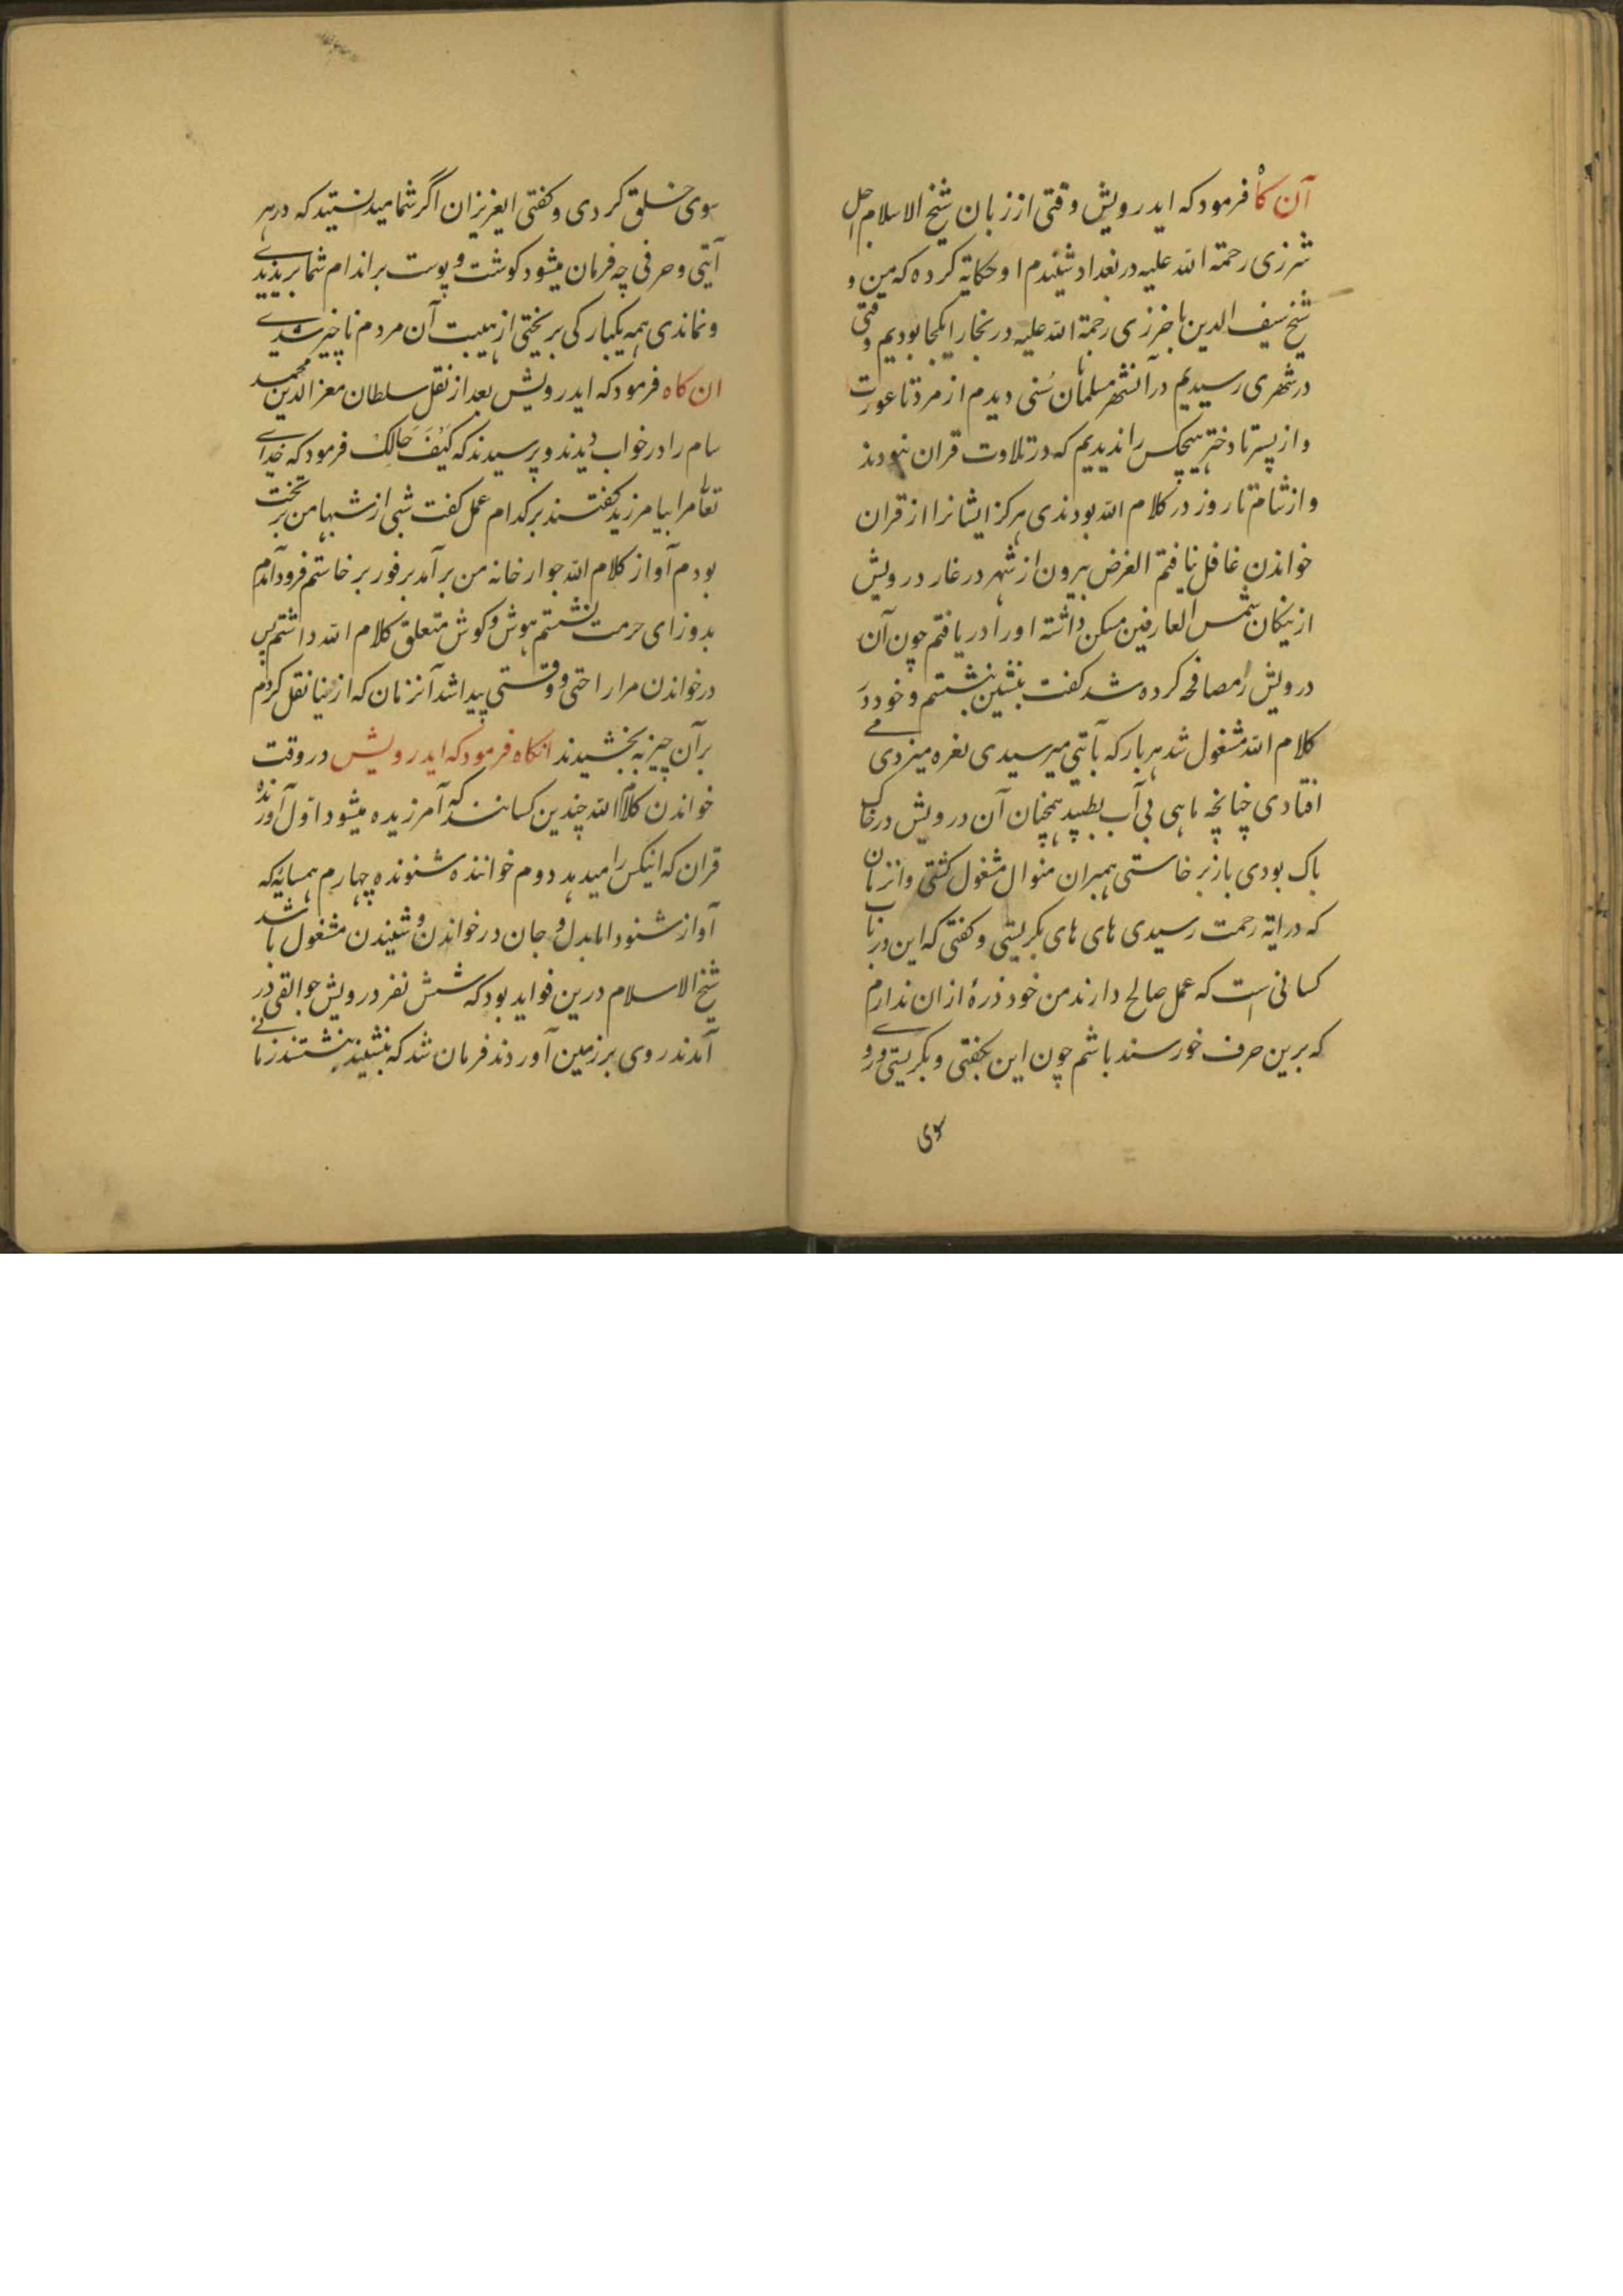 آن کاه فرمود که ایدرویش وقتی از زبان شیخ الاسلام اجل
شرزی رحمة الله علیه در بغداد شنیدم او حکایة کرده که من و
شیخ سیف الدین باخرزی رحمة الله علیه در بخارا یکجا بودیم وقتی
در شهری رسیدیم در آنشهر مسلمانان سُنی دیدم از مرد تا عورت
و از پسر تا دختر هیچکس را ندیدیم که در تلاوت قران نبودند
و از شام تا روز در کلام الله بودندی هرکز ایشانرا از قران
خواندن غافل نیافتم الغرض بیرون از شهر در غار درویش
از نیکان شمس العارفین مسکن داشته او را دریافتم چون آن
درویش را مصافحه کرده شد کفت بنشین بنشستم و خود در
کلام الله مشغول شد هر بار که بآیتی میرسیدی نعره میزدی
افتادی چنانچه ماهی بی آب بطپد همچنان آن درویش در خاک
باک بودی باز بر خاستی همبران منوال مشغول کشتی و انزمان
که در ایة رحمت رسیدی های های بکریستی و کفتی که این در باب
کسانی است که عمل صالح دارند من خود ذرۀ ازان ندارم
که برین حرف خورسند باشم چون این بکفتی و بکریستی و رو
سوی
سوی خلق کردی و کفتی ایعزیزان اگر شما میدانستید که در هر
آیتی و حرفی چه فرمان میشود کوشت و پوست بر اندام شما بریزیدی
و نماندی همه یکبارکی بریختی از هیبت آن مردم ناچیز شدی
ان کاه فرمود که ایدرویش بعد از نقل سلطان معز الدین محمد
سام را در خواب دیدند و پرسیدند که کَیْفَ حَالِکَ فرمود که خدای
تعالی مرا بیامرزید کفتند بر کدام عمل کفت شبی از شبها من بر تخت
بودم آواز کلام الله جوار خانه من بر آمد بر فور بر خاستم فرود آمدم
بدو زای حرمت نشستم هوش و کوش متعلق کلام الله داشتم پس
در خواندن مرا راحتی و وقتی پیدا شد آنزمان که از دنیا نقل کردم
بر آن چیز به بخشیدند انکاه فرمود که ایدرویش در وقت
خواندن کلام الله چندین کسانند که آمرزیده میشود اوّل آورنده
قران که اینکس را میدهد دوم خواننده شنونده چهارم همسایۀ که
آواز شنود اما بدل و جان در خواندن و شنیدن مشغول باشد
شیخ الاسلام درین فواید بود که شش نفر درویش جوالقی در
آمدند روی بر زمین آوردند فرمان شد که بنشیند بنشستند زمانی